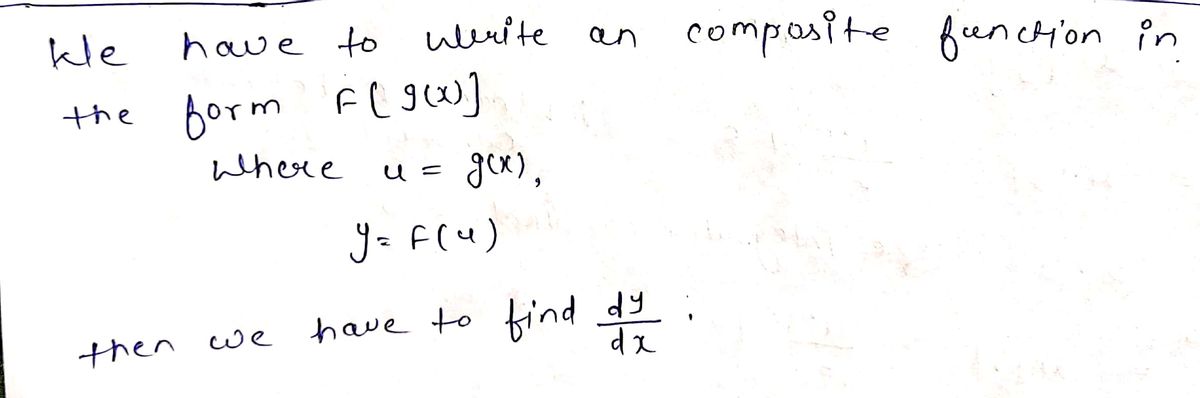 We have to write an composite function in
the form F[g(x)]
where u = g(x),
y = F(u)
then we have to find dy/dx.